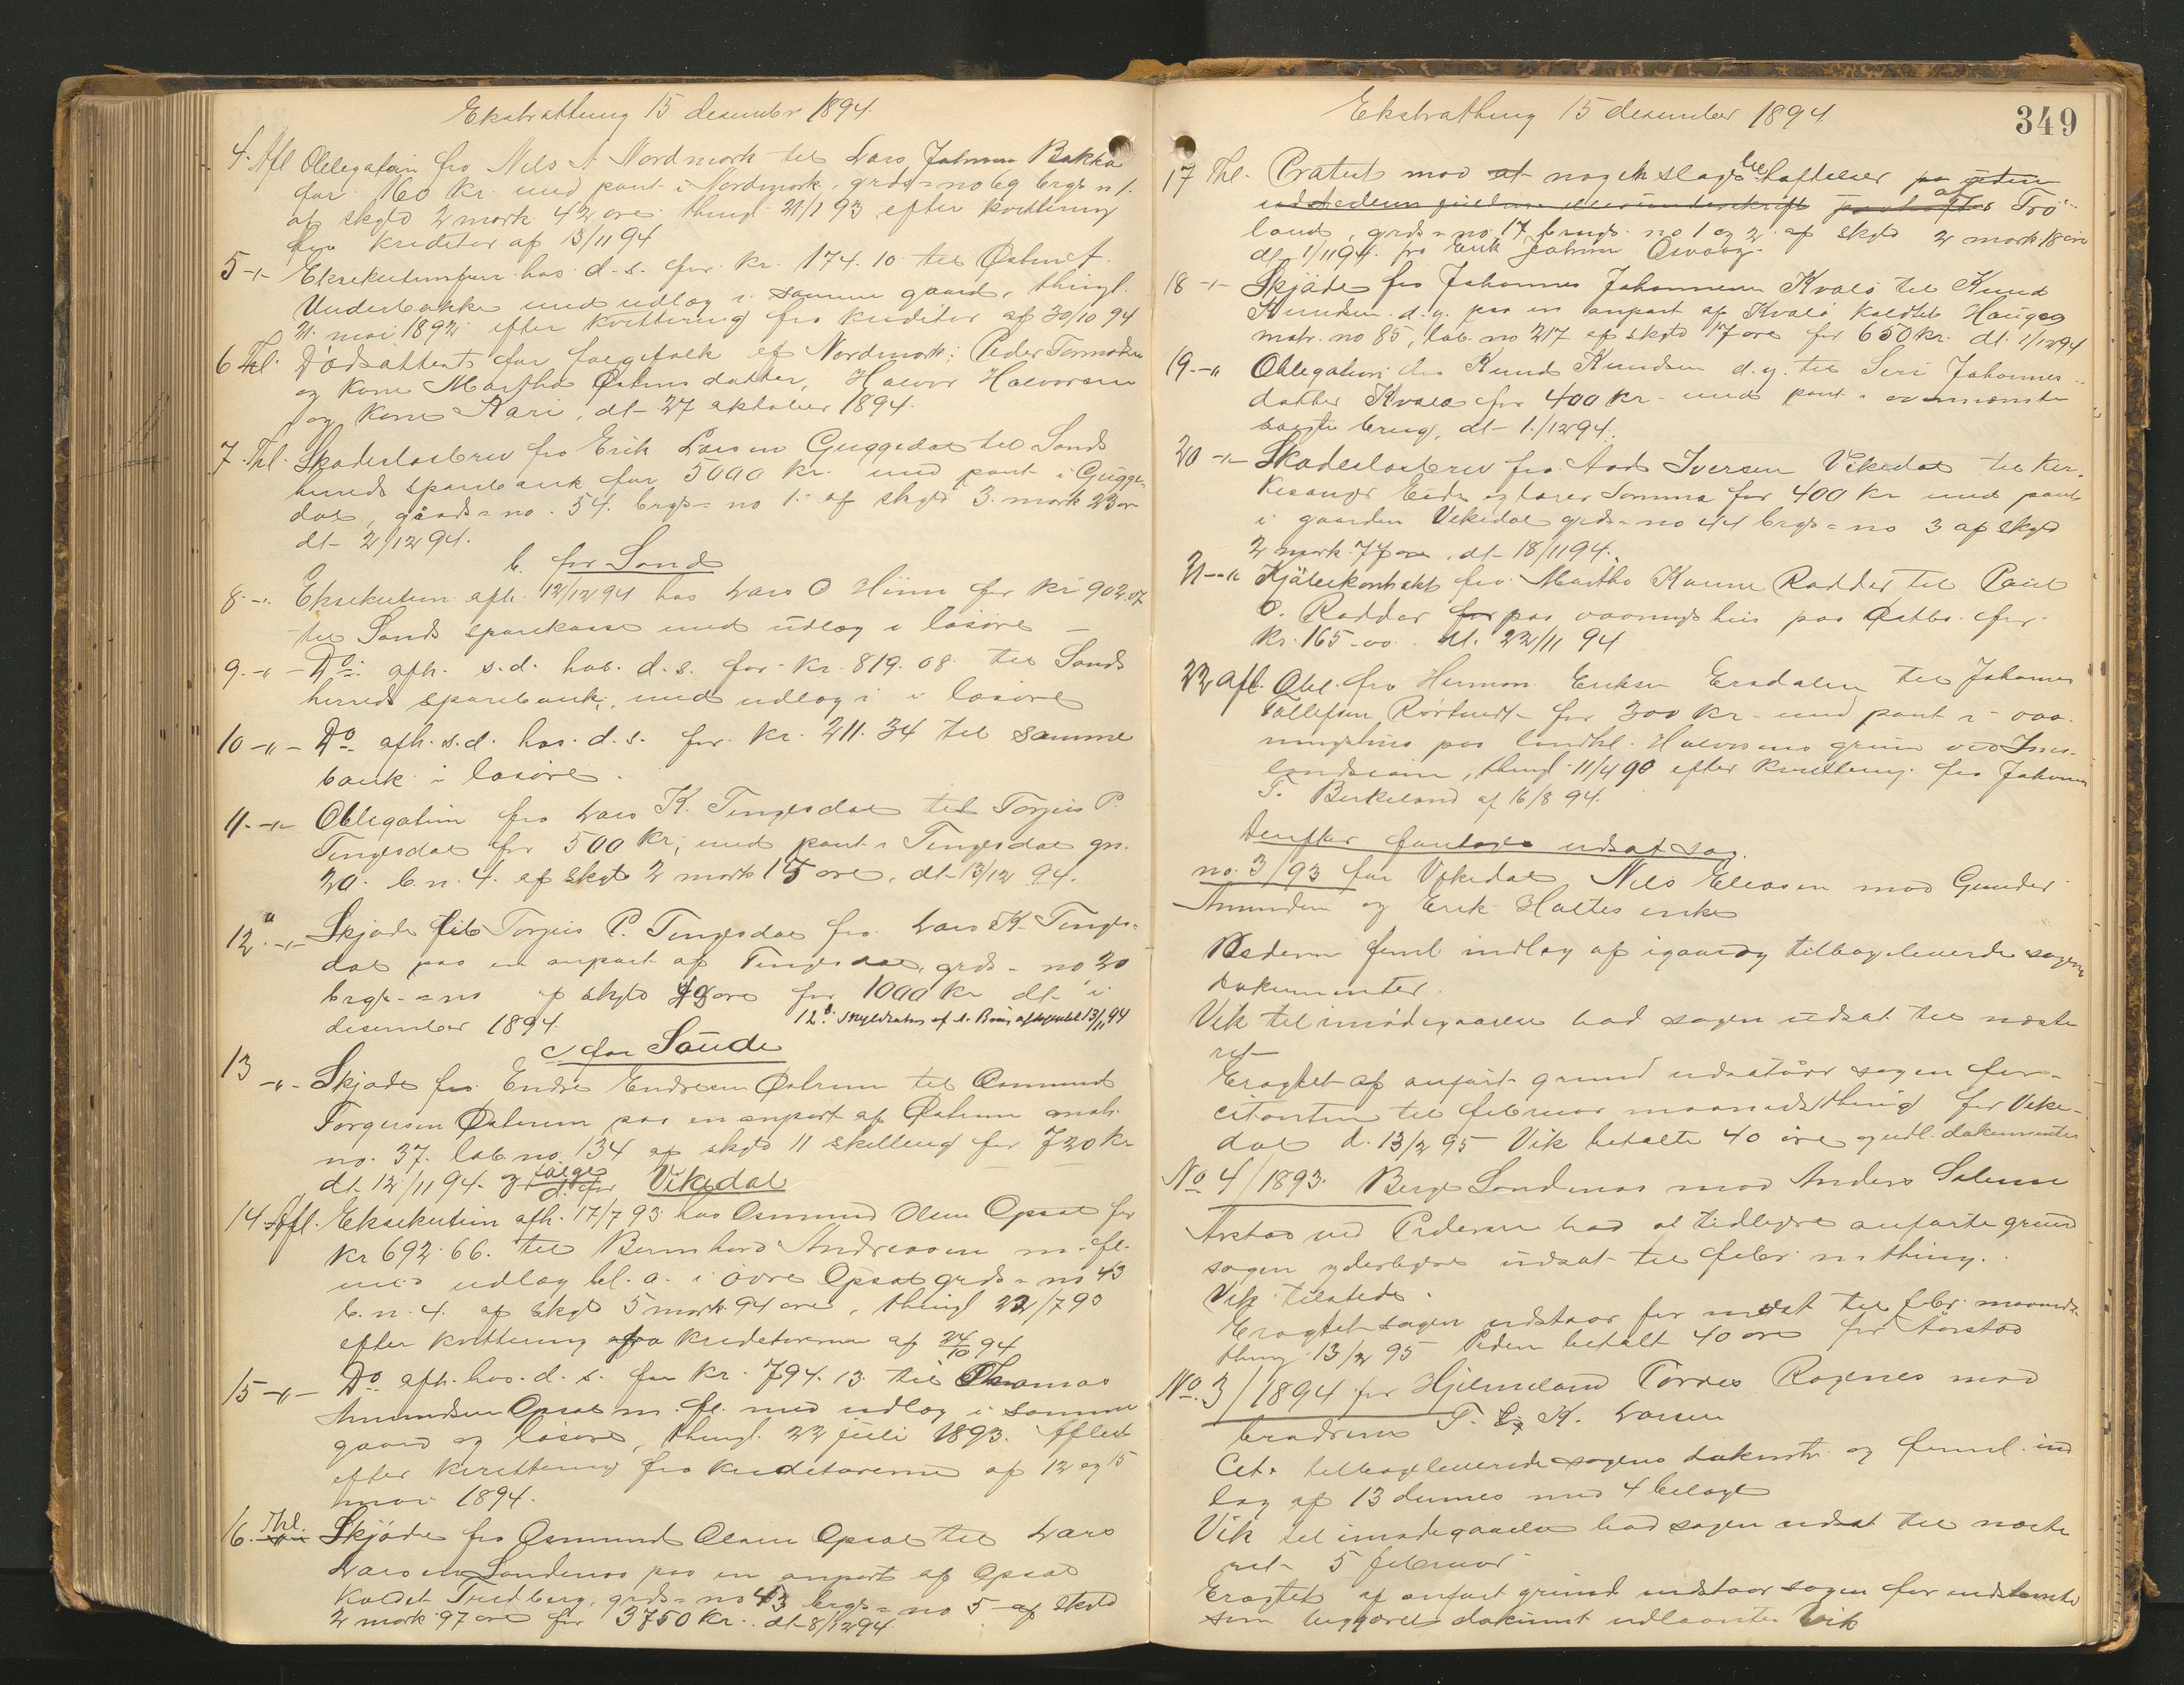 Ekstrathing 15 desember 1894.
4. Afl Obligation fra Nils A Nordmork til Lars Bakka
for 160 kr. med pant i Nordmork, grds=no 69 brgs n 1.
af skyld 2 mork 42 øre thingl 21/1 93 efter kvittering
fra kreditor af 13/11 94
5 -"- Eksekution hos d. s. for kr. 174.10 til
Underbakke med udlæg i samme gaard, thingl.
21. mai 1892 efter kvittering fra kreditor af 30/10 94
6 Thl. Dødsattest for folgefolk af Nordmork: Peder Tormodsen
og kone Martha datter, Halvor Halvorsen
og kone Kari, dt- 27 oktober 1894.
7. Thl. Skadesløsbrev fra Erik Larsen Guggedal til Sands
herreds sparebank for 5000 kr. med pant i Gugge-
dal, gårds=no. 54. brgs=no 1. af skyld 3. mork 23 ør
dt- 2/12 94.
b. for Sand
8. -"- Eksekution afh. 12/12 94 hos Lars O Hiim for kr 902.07
til Sands sparekasse med udlæg i løsøre
9. -"- Do: afh. s.d. hos. d.s. for kr. 819.08 til Sands
herreds sparebank, med udlæg i løsøre
10 -"- Do afh. s.d. hos. d.s. for kr. 211.34 til samme
bank i løsøre.
11. -"- Obligation fra Lars K. Tengesdal til Torgeis P.
Tengesdal for 500 kr, med pant i Tengesdal gn.
20. b.n. 4. af skyld 2 mork 15 øre, dt- 13/12 94.
12 a -"- Skjøde til Torgeis P. Tengesdal fra Lars K. Tenges-
dal paa en anpart af Tengesdal, grds=no 20
brgs=no af skyld øre for 1000 kr dt- i
desember 1894. 12 b. af s. Brug afholdt 13/11 94
c/ for Saude
13 -"- Skjøde fra Endre Endresen Østrem til Osmund
Torgersen Østrem paa en anpart af Østrem matr.
no. 37. løb.no. 134 af skyld 11 skilling for 720 kr
dt- 12/11 94. d. for Vikedal
14 Afl. Eksekution afh. 17/7 93 hos Osmund Olsen Opsal for
kr 692.66. til Bernhard Andreasen m. fl.
med udlæg bl. a. i øvre Opsal grds=no 43
b.n. 4. af skyld 5 mork 94 øre, thingl 22/7 93
efter kvittering fra kreditorerne af 24/10 94
15 -"- Do afh. hos. d. s. for kr. 794.13. til Thomas
Amundsen Opsal m. fl. med udlæg i samme
gaard og løsøre, thingl. 22 juli 1893. Aflest
efter kvittering fra kreditorerne af 12 og 15
mai 1894.
16. Thl. Skjøde fra Osmund Olsen Opsal til Lars
Larsen Sandenos paa en anport af Opsal
kaldet Tredberg, grds=no 43 brgs=no 5 af skyld
2 mork 97 øre for 3750 kr. dt- 8/12 94.
Ekstrathing 15 desember 1894
349
17 Thl. Protest mod at nogen slags behæftelser
Trö-
land, grds=no. 17 brugs no 1 og 2 af skyld 2 mork 18 øre
dt- 1/11 94. fra Erik
18 -"- Skjøde fra Johannes Johannesen Kvalø til Knud
Knudsen d.y. paa en anpart af Kvalø kaldet Haugen
matr. no 85, løb. no 217 af skyld 17 øre for 650 kr. dt. 1/12 94
19. -"- Obligation fra Knud Knudsen d.y. til Siri Johannes-
datter Kvalø for 400 kr. med pant i ovennævnte
solgte brug, dt- 1/12 94.
20 -"- Skadesløsbrev fra Aad Iversen Vikedal til
for 400 kr med pant
i gaarden Vikedal grds=no 44 brgs=no 3 af skyld
2 mork 74 øre, dt- 18/11 94.
21 -"- Kjøbekontrakt fra Martha Karine Rødder til Paul
O. Rødder paa vaaningshus paa Østbø for
kr. 165.00. dt. 22/11 94
22 Afl. Obl. fra Herman Eriksen Ersdalen til Johannes
Tollefsen for 300 kr. med pant i vaa-
ningshus paa landhl. Halvorsens grund ved Imis-
landssiøen, thingl. 11/4 90 efter kvittering fra Johannes
T. Birkeland af 16/8 94.
Derefter foretoges udsat sag.
no. 3/93 for Vikedal Nils Eliasen mod Gunder
Amundsen og Erik Haltes enke
Pedersen freml indlæg af igaar og tilbageleverede sagens
dokumenter.
Vik til imødegaaelse bad sagen udsat til næste
ret-
Eragtet af anført grund udsatåas sagen for
citanten til februar maanedsthing for Vike-
dal d. 13/2 95 Vik betalte 40 øre og udl. dokumenter
No 4/1893. Berge Sandenos mod Anders Salene
Årstad ved Pedersen bad af tidligere anførte grund
sagen yderligere udsat til febr. m thing.
Vik tilstede.
Eragtet sagen udstaar for m til febr. maaneds-
thing 13/2 95 Peders betalt 40 øre for Aarstad
No. 3/1894 for Hjelmeland Tordes Ragenes mod
brødrene T. & K. Larsen
Cit. tilbageleverede sagens dokmtr og freml. ind
læg af 13 dennes med 4 bilage
Vik til imødegaaelse bad sagen udsat til næste
ret- 5 februar
Eragtet af anført grund udstaar sagen for
som begjæret dokumt udlaantes Vik